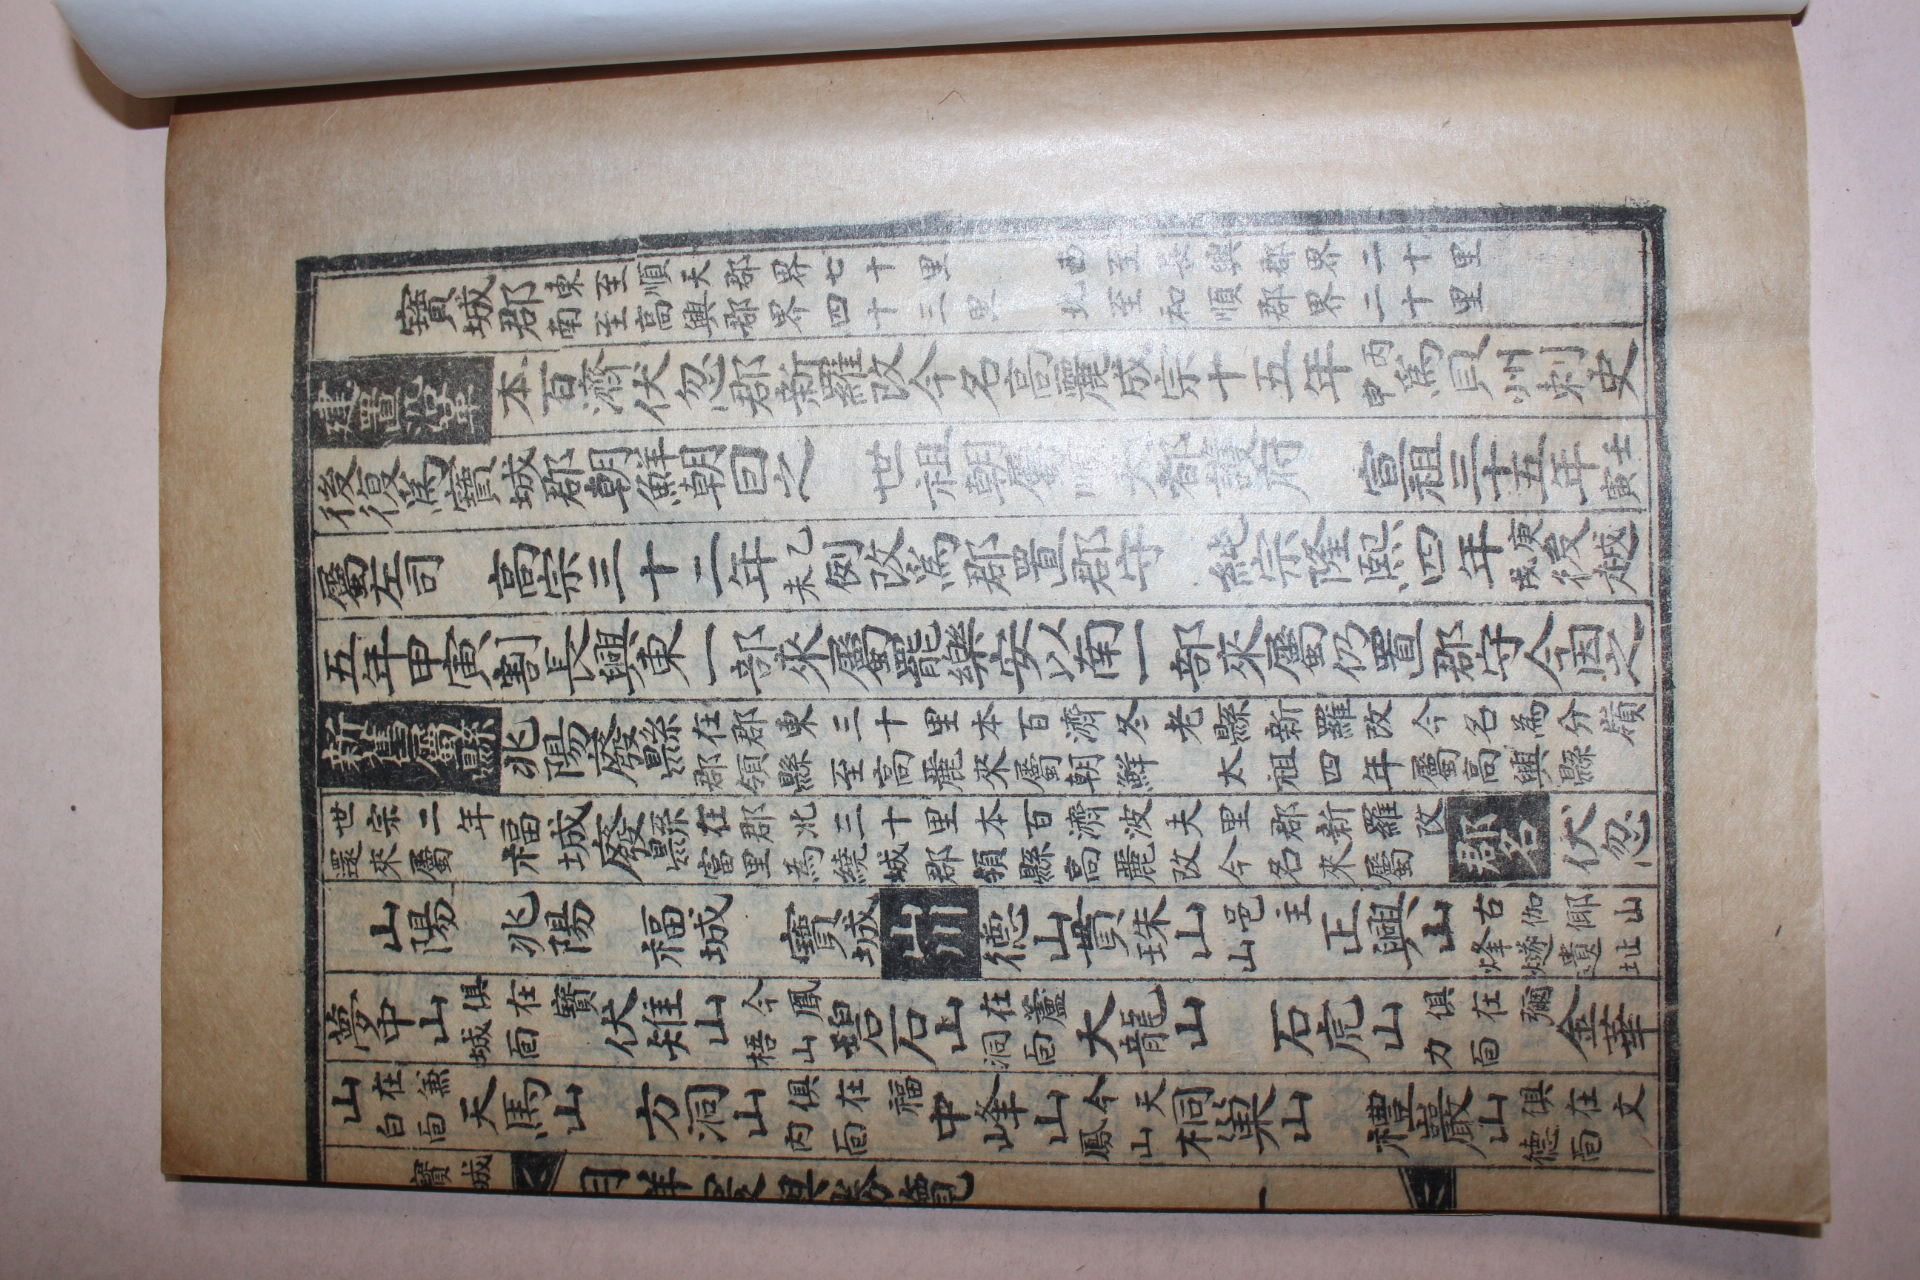 寶城郡 東至順天郡界七十里 南至高興郡界四十三里 西至長興郡界二十里 北至和順郡界二十里
建置沿革 本百濟伏忽郡新羅改今名高麗成宗十五年丙申為貝州刺史
後復為寶城郡朝鮮朝因之 世祖朝屬 大都護府 宣祖三十五年壬寅
屬左司 高宗三十二年乙未例改為郡置郡守 純宗隆熙四年庚戌後越
五年甲寅割長興東一部來屬龍樂安以南一部來屬仍置郡守今因之
新舊屬縣 兆陽廢縣在郡東三十里本百濟冬老縣新羅改今名為分嶺郡領縣至高麗來屬朝鮮太祖四年屬高興縣
世宗二年還來屬 福城廢縣在郡北三十里本百濟波夫里郡新羅改富里為綾城郡領縣高麗改今名來屬 郡名 伏忽
山陽 兆陽 福城 寶城 山川 德山 貫珠山 邑主山 正興山 古烽燧伽倻遺址 山
夢中山 俱在寶城面 伏雉山 今鳳梧山 碧石山 在蘆洞面 大龍山 石虎山 俱在彌力面 金華
山 在兼白面 天馬山 方洞山 俱在福內面 中峰山 今天鳳山 桐巢山 禮巖山 俱在文德面
寶城 勝覽 一